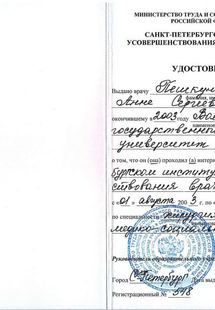 МИНИСТЕРСТВО ТРУДА И СО
РОССИЙСКОЙ Ф
САНКТ-ПЕТЕРБУРГ
УСОВЕРШЕНСТВОВАНИЯ
УДОСТО
Выдано врачу Пешкун
Анне Сергеев
окончившему в 2003 году
государственны
университет
о том, что он (она) проходил (а) интерн
бургском институ
ствования врач
с «01» августа 2003 г. по «
по специальности
медико-социальн
Руководитель образовательного учре
Город С-Петербург Дата выд
Регистрационный № 548